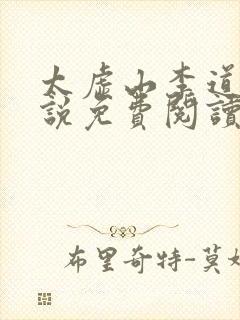 太虛山李道
說免費閱讀
布里奇特-莫